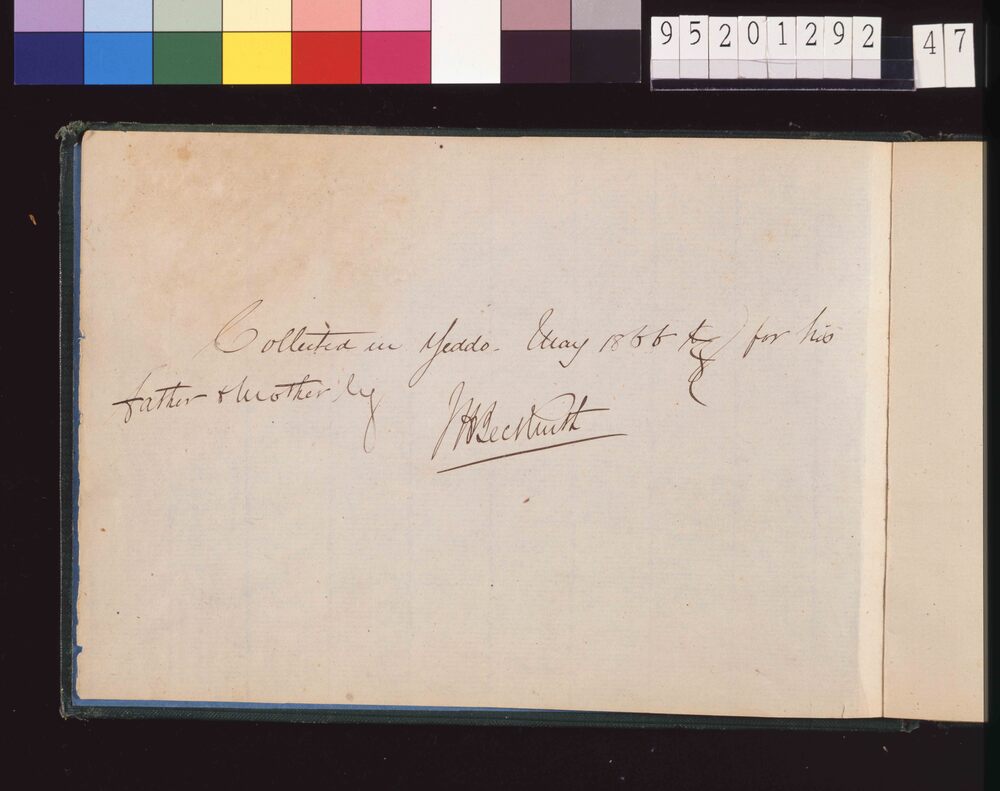 95201292 47
Collected in Yeddo. May 1866 for his
father & Mother by